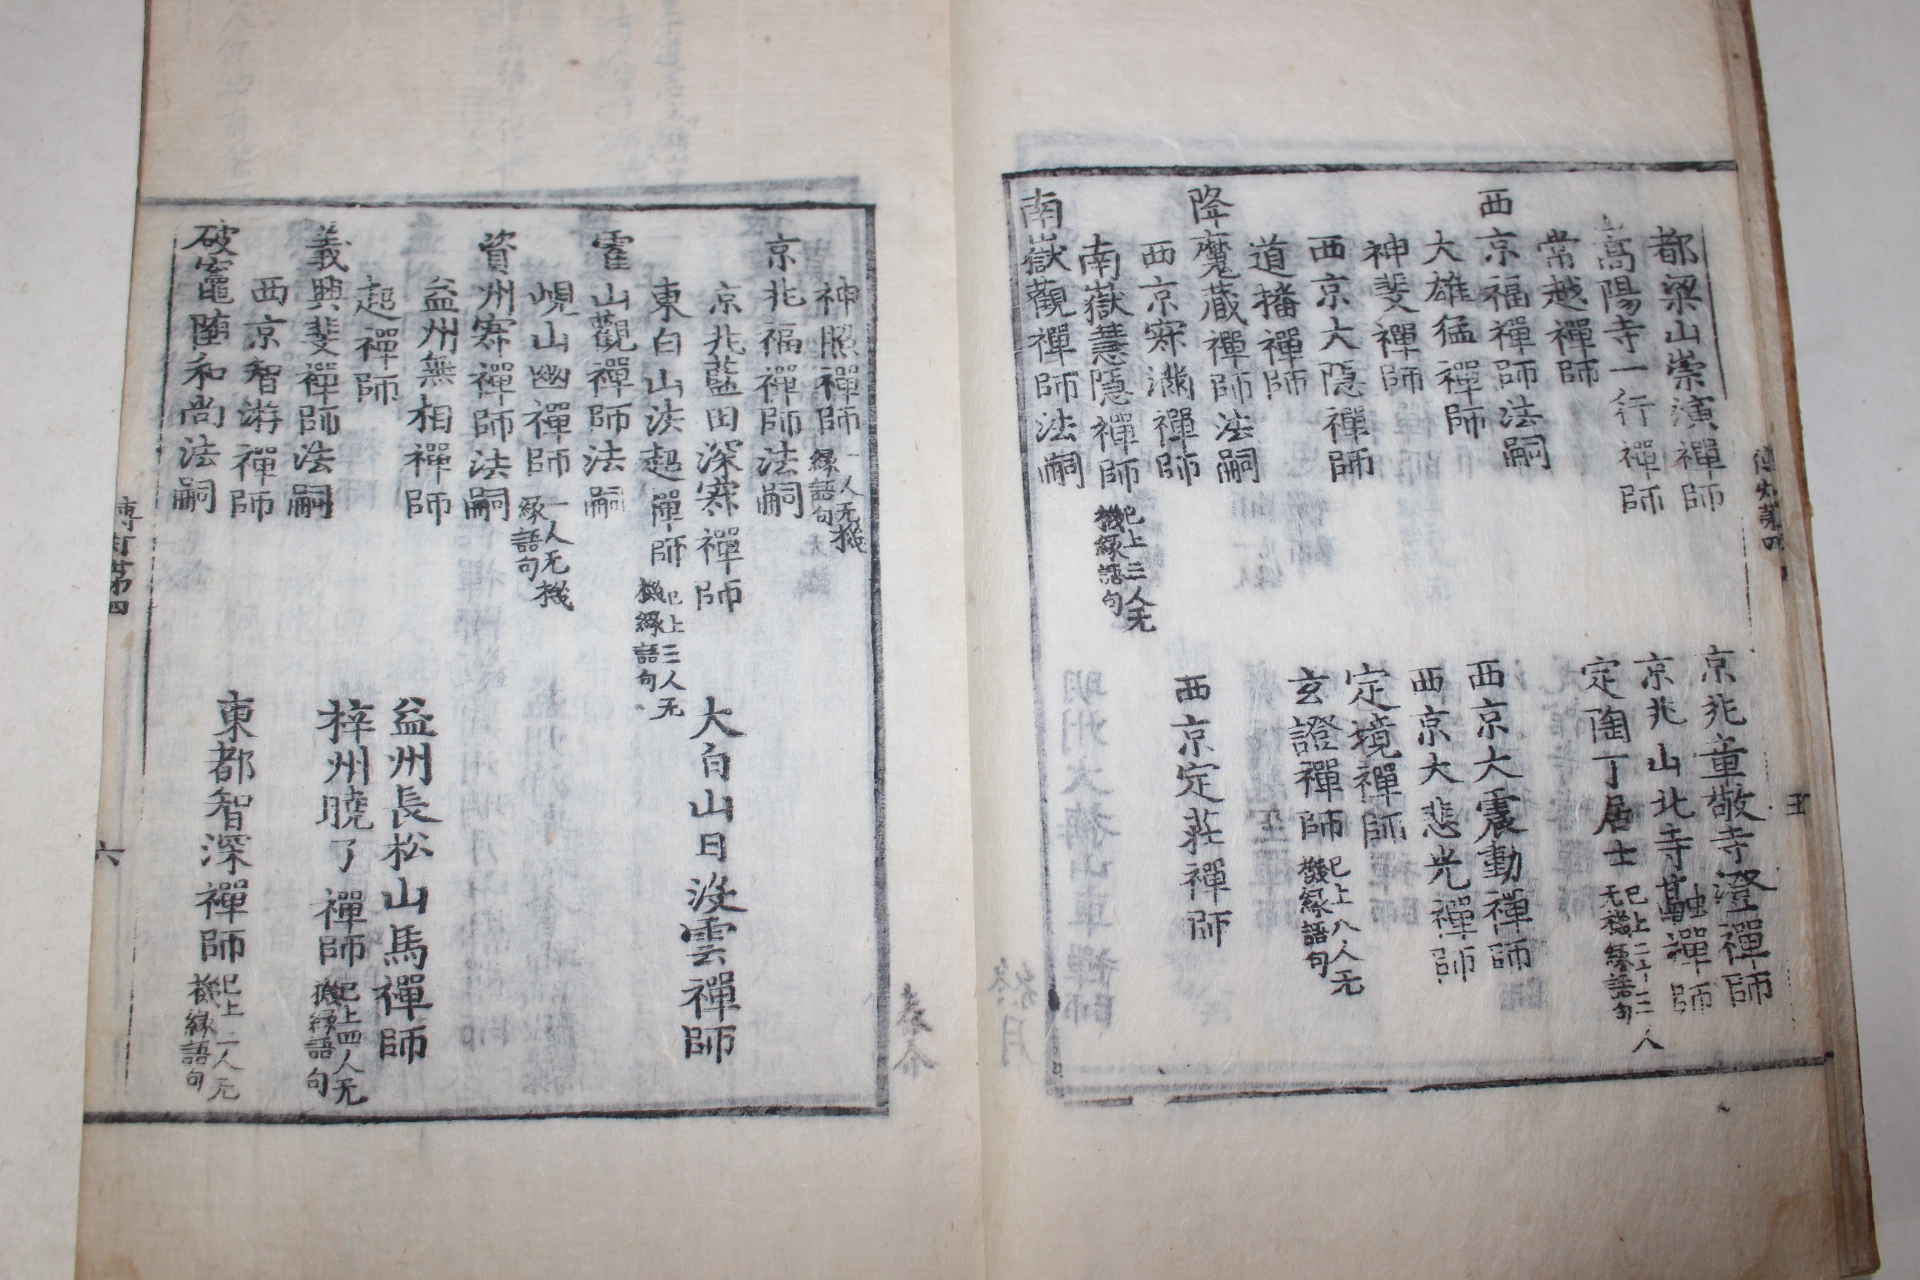 都梁山崇演禪師 京兆章敬寺澄禪師
嵩陽寺一行禪師 京兆山北寺融禪師
常越禪師 定陶丁居士 已上二十三人无機緣語句
西京福禪師法嗣
大雄猛禪師 西京大震動禪師
神斐禪師 西京大悲光禪師
西京大隱禪師 定境禪師
道播禪師 玄證禪師 已上八人无機緣語句
降魔藏禪師法嗣
西京寂滿禪師 西京定莊禪師
南嶽慧隱禪師 已上三人无機緣語句
南嶽觀禪師法嗣
神照禪師 一人无機緣語句
京兆福禪師法嗣
京兆藍田深寂禪師 大白山日沒雲禪師
東白山法超禪師 已上三人无機緣語句
霍山觀禪師法嗣
峴山幽禪師 一人无機緣語句
資州寂禪師法嗣
益州無相禪師 益州長松山馬禪師
超禪師 梓州曉了禪師 已上四人无機緣語句
義興斐禪師法嗣
西京智游禪師 東都智深禪師 已上二人无機緣語句
破竈墮和尚法嗣
傳灯第四 六